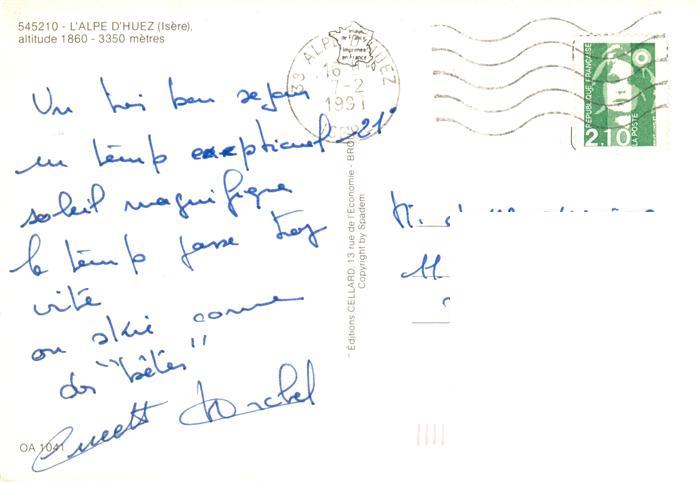 545210 - L'ALPE D'HUEZ (Isère),
altitude 1860 - 3350 mètres
Un très bon séjour
un temp exeptionnel -21°
soleil magnifique
le temp passe trop
vite
on skie comme
des "bêtes"
Michel
OA 1041
38 ALPE D'HUEZ
7-2
1991
Imprimé
en France
Éditions CELLARD, 13 rue de l'Economie - BRO
Copyright by Spadem
M.
REPUBLIQUE FRANÇAISE
2,10
LA POSTE